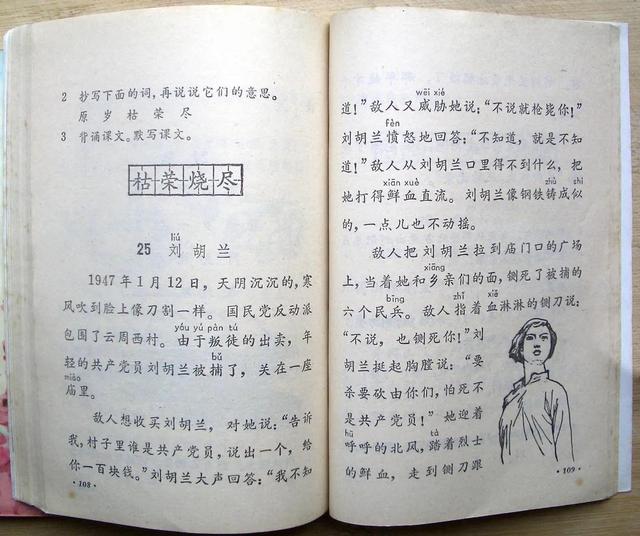 2 抄写下面的词，再说说它们的意思。
原 岁 枯 荣 尽
3 背诵课文。默写课文。
枯荣烧尽
liú
25 刘 胡 兰
1947年1月12日，天阴沉沉的，寒
风吹到脸上像刀割一样。国民党反动派
yóu yú pàn tú
包围了云周西村。由于叛徒的出卖，年
bǔ
轻的共产党员刘胡兰被捕了，关在一座
miào
庙里。
敌人想收买刘胡兰，对她说：“告诉
我，村子里谁是共产党员，说出一个，给
你一百块钱。”刘胡兰大声回答：“我不知
·108·
wēi xié
道！”敌人又威胁她说：“不说就枪毙你！”
fèn
刘胡兰愤怒地回答：“不知道，就是不知
道！”敌人从刘胡兰口里得不到什么，把
xiān xuè zhù shì
她打得鲜血直流。刘胡兰像钢铁铸成似
的，一点儿也不动摇。
敌人把刘胡兰拉到庙门口的广场
xiāng
上，当着她和乡亲们的面，铡死了被捕的
bīng zhǐ xiě
六个民兵。敌人指着血淋淋的铡刀说：
“不说，也铡死你！”刘
胡兰挺起胸膛说：“要
杀要砍由你们，怕死不
是共产党员！”她迎着
hū tà
呼呼的北风，踏着烈士
的鲜血，走到铡刀跟
·109·